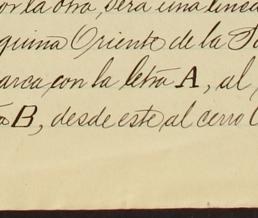 por la otra, será una linea
quina Oriente de la
arca con la letra A, al
B, desde este al cerro